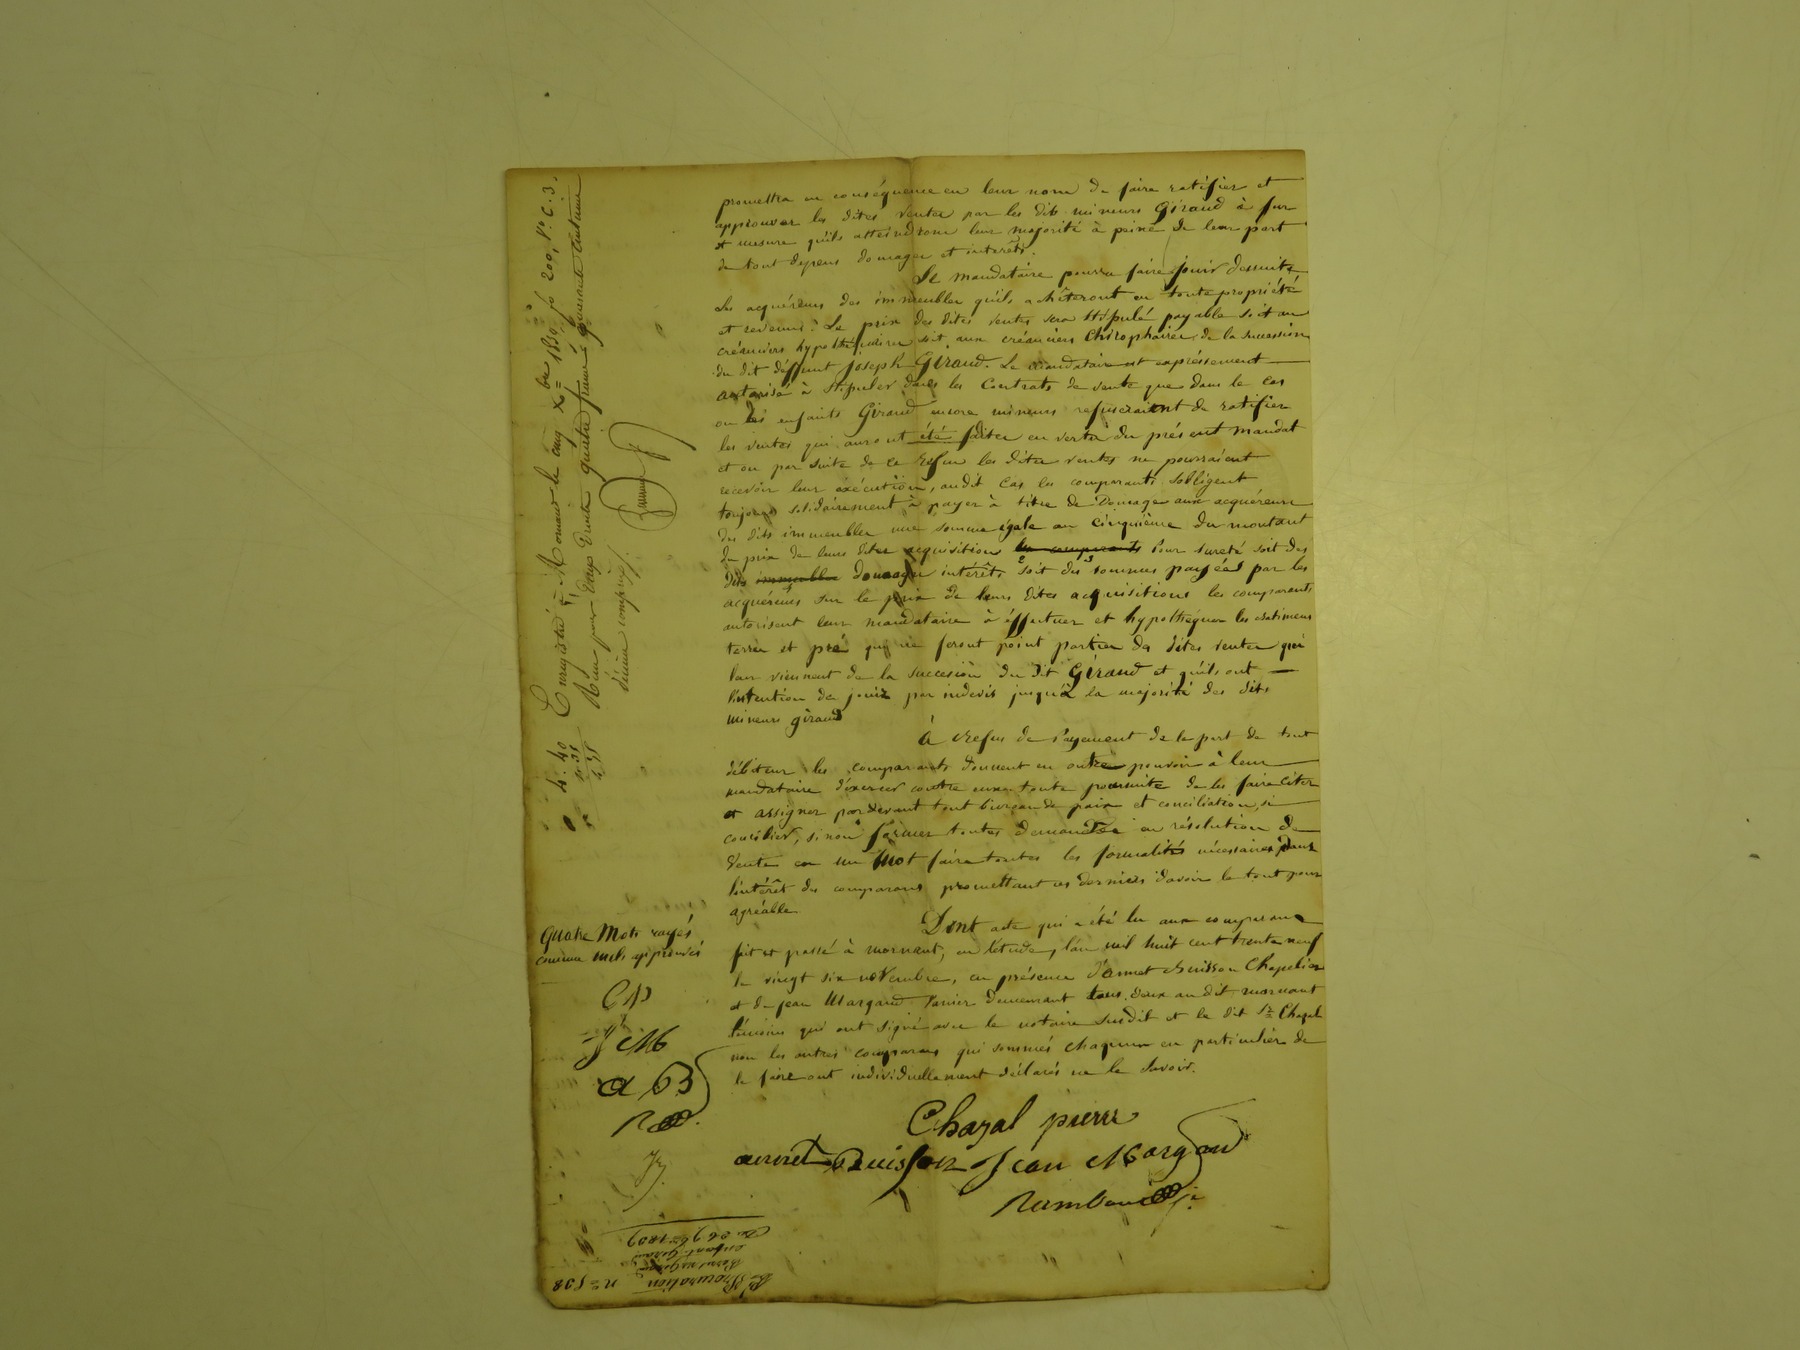 promettra en conséquence en leur nom de faire ratifier et
approuver les dites ventes par les dits mineurs Giraud à fur
et mesure qu'ils atteindront leur majorité à peine de leur part
de tout depens domages et intérêts.
Le mandataire pourra faire jouir dessuite
les acquéreurs des immeubles qu'ils achèteront en toute propriété
et revenus. Le prix des dites ventes sera stipulé payable soit aux
créanciers hypothécaires soit aux créanciers chirophaires de la succession
du dit déffunt Joseph Giraud. Le mandataire est expréssement
autorisé à stipuler dans les Contrats de vente que dans le cas
ou les enfants Giraud encore mineurs refuseraient de ratifier
les ventes qui auront été faites en vertu du présent mandat
et ou par suite de ce refus les dites ventes ne pourraient
recevoir leur éxécution, audit Cas les comparants sobligent
toujours solidairement à payer à titre de Domage aux acquéreurs
des dits immeubles une somme égale au cinquième du montant
du prix de leurs dites acquisitions les comparants Pour sureté soit des
dits immeubles domages intérêts soit des sommes payées par les
acquéreurs sur le prix de leurs dites acquisitions les comparants
autorisent leur mandataire à éffectuer et hypothéquer les batimens
terres et pré qui ne feront point parties des dites ventes qui
leur viennent de la succession du dit Giraud et qu'ils ont
l'intention de jouir par indivis jusqu'à la majorité des dits
mineurs giraud
À refus de Payement de la part de tout
débiteur les comparants donnent en outre pouvoir à leur
mandataire d'éxercer contre eux toute poursuite de les faire citer
et assigner pardevant tout bureau de paix et conciliation, se
concilier, sinon former toutes demandes en résolution de
Vente en un Mot faire toutes les formalités nécessaires dans
l'intérêt des comparans promettant ces derniers d'avoir le tout pour
agréable.
Dont acte qui a été lu aux comparans
fait et passé à mornant, en l'étude, l'an mil huit cent trente neuf
le vingt six novembre, en présence d'annet Buisson Chapelier
et de jean Margaud Vanier demeurant tous deux au dit mornant
témoins qui ont signé avec le notaire susdit et le dit Sr Chazal
non les autres comparans qui sommés chaqu'un en particulier de
le faire ont individuellement déclarés ne le savoir.
Chazal pierre
annet Buisson Jean Margaud
Enregistré à Mornant le cinq Xbre 1839, fo 200, Vo. C. 3.
décime compris
4. 40
Quatre Mots rayés
comme nuls approuvés
CP
J M
a B
Procuration
enfant Giraud
Du 26 9bre 1839